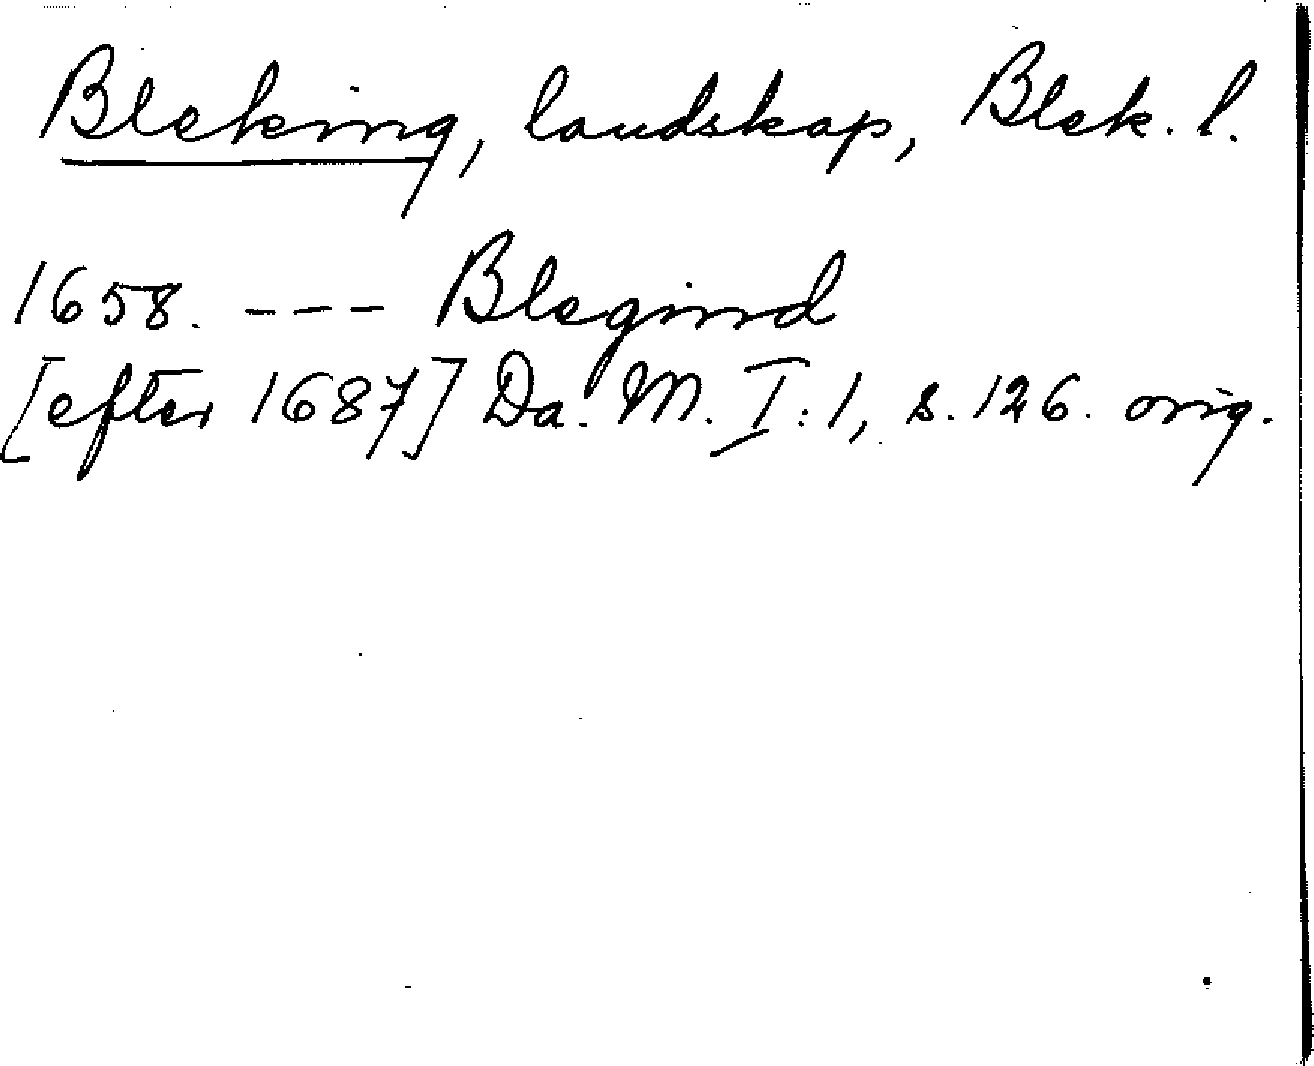 Bleking, landskap, Blek. l.
1658. --- Blegind
[efter 1687] Da. M. I:1, s. 126. orig.